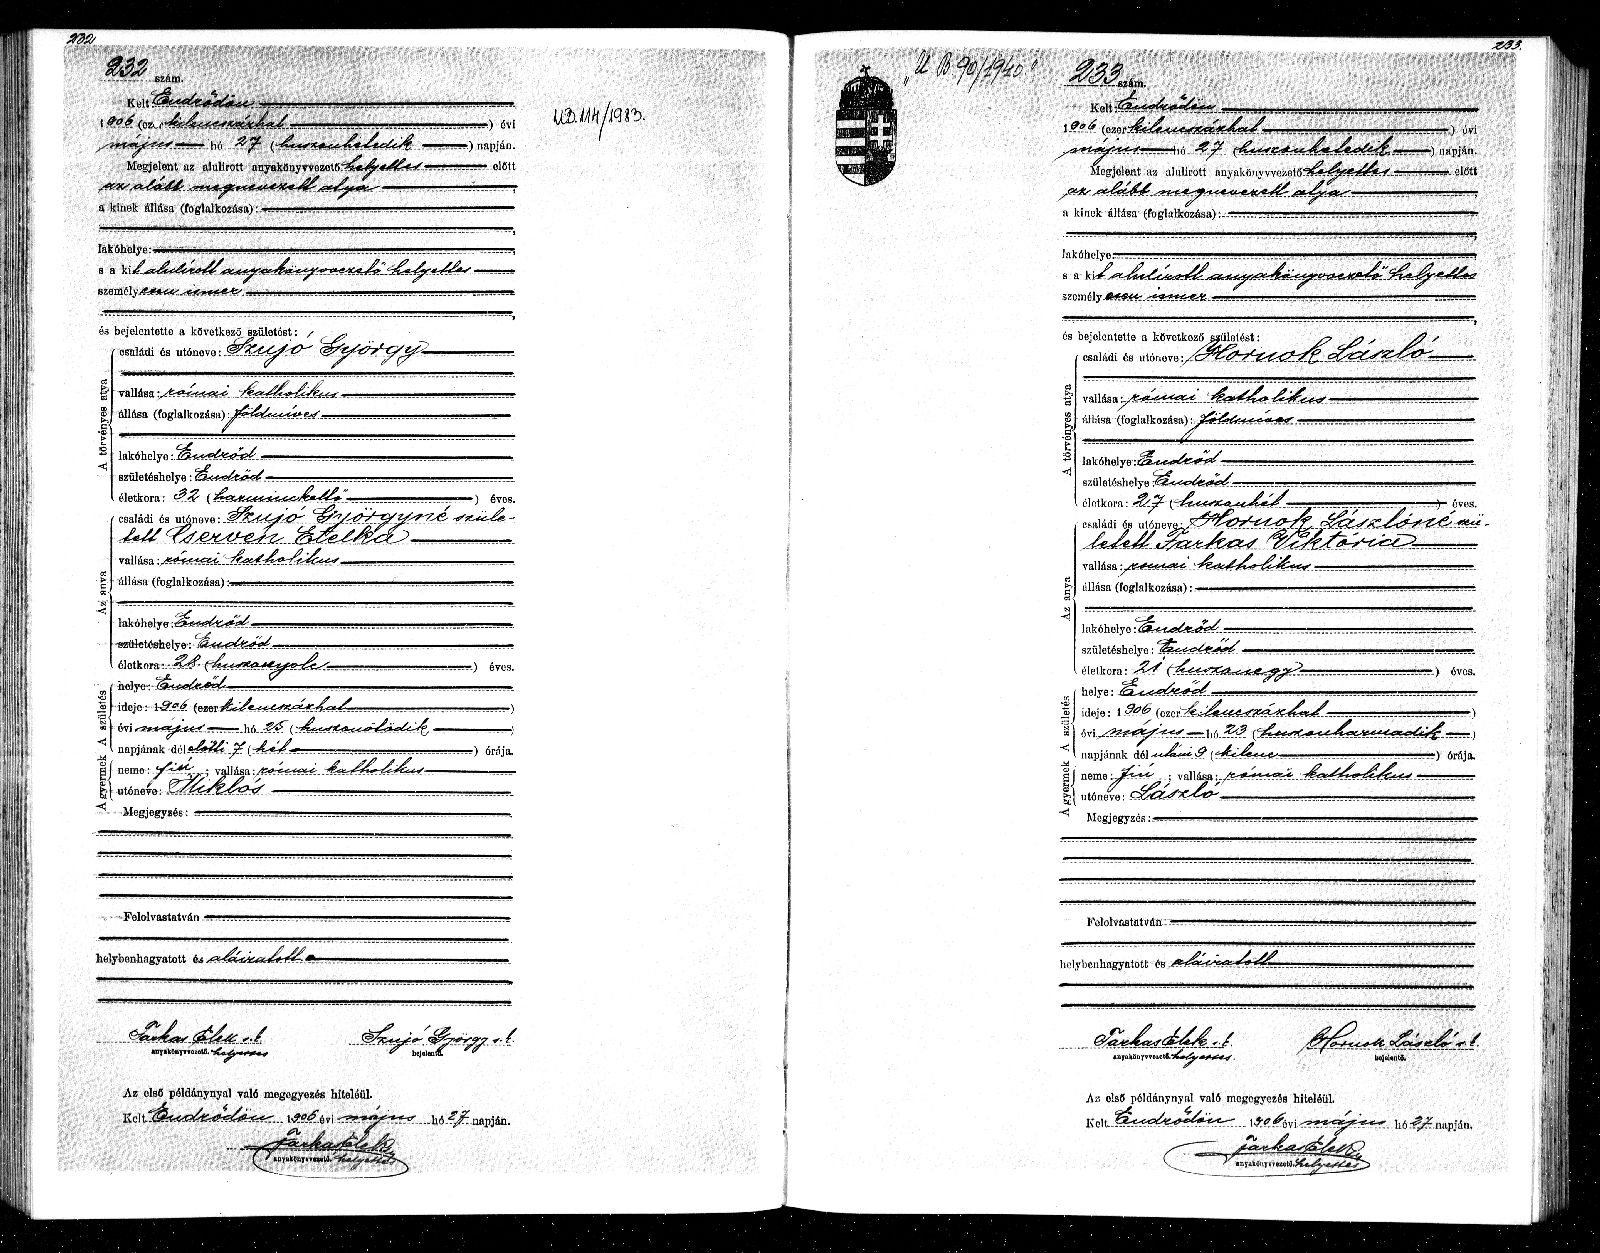 232
232 szám.
Kelt Endrődön
1906 (ezer kilencszázhat ) évi
május hó 27 (huszonhetedik ) napján.
Megjelent az alulirott anyakönyvvezető helyettes előtt
az alább megnevezett atya ,
a kinek állása (foglalkozása):
lakóhelye:
s a kit alulírott anyakönyvvezető helyettes
személyesen ismer
és bejelentette a következő születést:
A törvényes atya
családi és utóneve: Szujó György
vallása: római katholikus
állása (foglalkozása): földmíves
lakóhelye: Endrőd
születéshelye: Endrőd
életkora: 32 (harminckettő ) éves.
Az anya
családi és utóneve: Szujó Györgyné szüle-
tett Cserven Etelka
vallása: római katholikus
állása (foglalkozása):
lakóhelye: Endrőd
születéshelye: Endrőd
életkora: 28 (huszonnyolc ) éves.
A születés
helye: Endrőd
ideje: 1906 (ezer kilencszázhat )
évi május hó 25 (huszonötödik )
napjának dél előtti 7 (hét ) órája.
A gyermek
neme: fiú ; vallása: római katholikus
utóneve: Miklós
Megjegyzés:
Felolvastatván
helybenhagyatott és aláiratott
Farkas Elek s.k. Szujó György s.k.
anyakönyvvezető. helyettes bejelentő.
Az első példánynyal való megegyezés hiteléül.
Kelt Endrődön 1906 évi május hó 27 napján.
Farkas Elek
anyakönyvvezető. helyettes
UB. 114/1983.
233.
„U B. 90/1940."
233 szám.
Kelt Endrődön
1906 (ezer kilencszázhat ) évi
május hó 27 (huszonhetedik ) napján.
Megjelent az alulirott anyakönyvvezető helyettes előtt
az alább megnevezett atya ,
a kinek állása (foglalkozása):
lakóhelye:
s a kit alulírott anyakönyvvezető helyettes
személyesen ismer
és bejelentette a következő születést:
A törvényes atya
családi és utóneve: Hornok László
vallása: római katholikus
állása (foglalkozása): földmíves
lakóhelye: Endrőd
születéshelye: Endrőd
életkora: 27 (huszonhét ) éves.
Az anya
családi és utóneve: Hornok Lászlóné szü-
letett Farkas Viktória
vallása: római katholikus
állása (foglalkozása):
lakóhelye: Endrőd
születéshelye: Endrőd
életkora: 21 (huszonegy ) éves.
A születés
helye: Endrőd
ideje: 1906 (ezer kilencszázhat )
évi május hó 23 (huszonharmadik )
napjának dél utáni 9 (kilenc ) órája.
A gyermek
neme: fiú ; vallása: római katholikus
utóneve: László
Megjegyzés:
Felolvastatván
helybenhagyatott és aláiratott
Farkas Elek s.k. Hornok László s.k.
anyakönyvvezető. helyettes. bejelentő.
Az első példánynyal való megegyezés hiteléül.
Kelt Endrődön 1906 évi május hó 27 napján.
Farkas Elek
anyakönyvvezető. helyettes